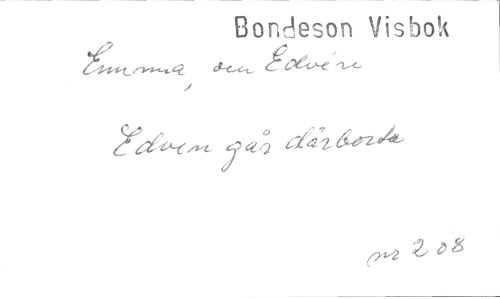 Bondeson Visbok
Emma, och Edvin
Edvin går därborta
nr 208